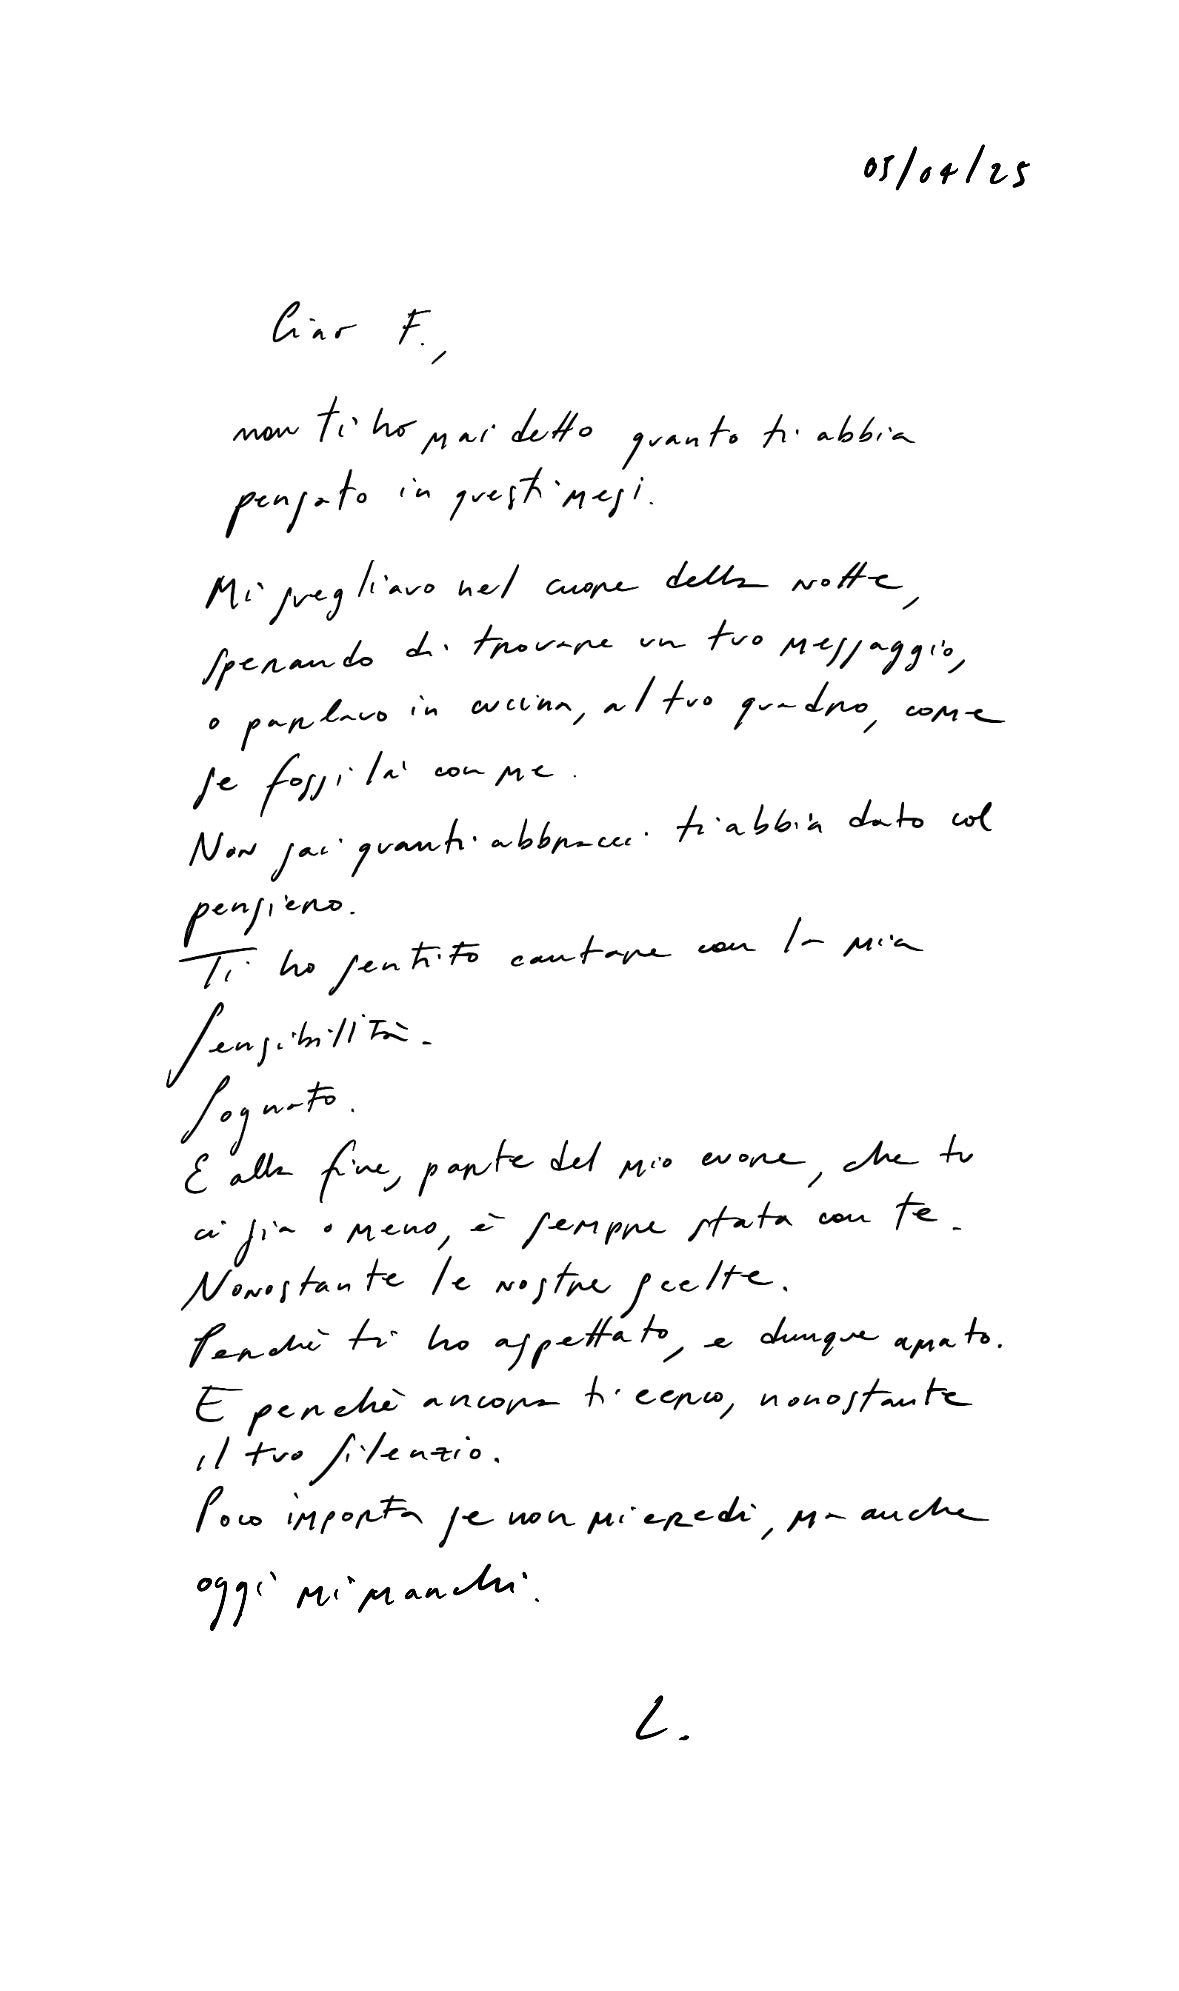 05/04/25
Ciao F.,
non ti ho mai detto quanto ti abbia
pensato in questi mesi.
Mi svegliavo nel cuore della notte,
sperando di trovare un tuo messaggio,
o parlavo in cucina, al tuo quadro, come
se fossi là con me.
Non sai quanti abbracci ti abbia dato col
pensiero.
Ti ho sentito cantare con la mia
sensibilità.
Sognato.
E alla fine, parte del mio cuore, che tu
ci sia o meno, è sempre stata con te.
Nonostante le nostre scelte.
Perchè ti ho aspettato, e dunque amato.
E perchè ancora ti cerco, nonostante
il tuo silenzio.
Poco importa se non mi credi, ma anche
oggi mi manchi.
L.